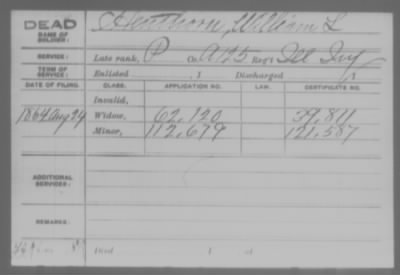 DEAD
NAME OF SOLDIER: Henthorn, William L
SERVICE: Late rank, P Co. A 115 Reg't Ill Inf
TERM OF SERVICE: Enlisted , 1 Discharged , 1
DATE OF FILING. CLASS. APPLICATION NO. LAW. CERTIFICATE NO.
Invalid,
1864 Aug 24 Widow, 62,120 39,811
Minor, 112,679 121,587
ADDITIONAL SERVICES:
REMARKS:
Died , 1 , at